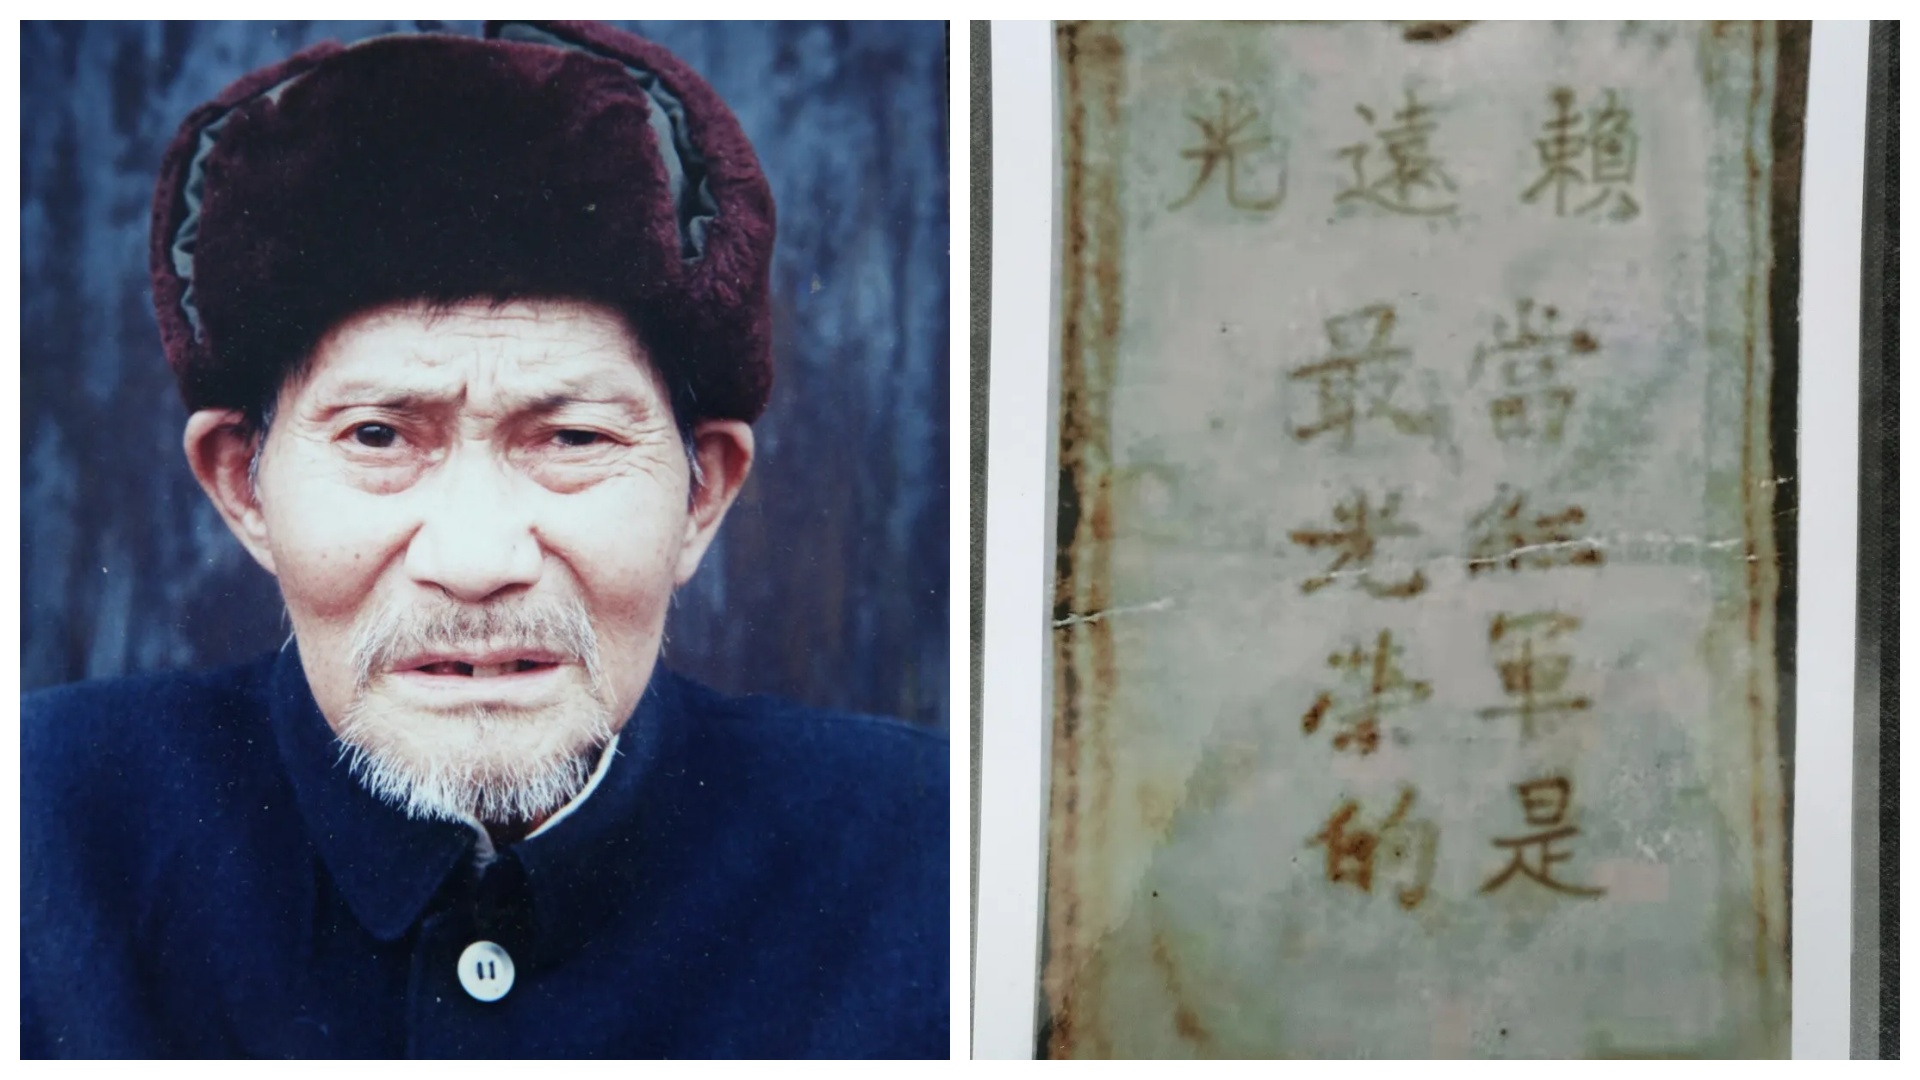 賴遠光
當紅軍是
最光榮的